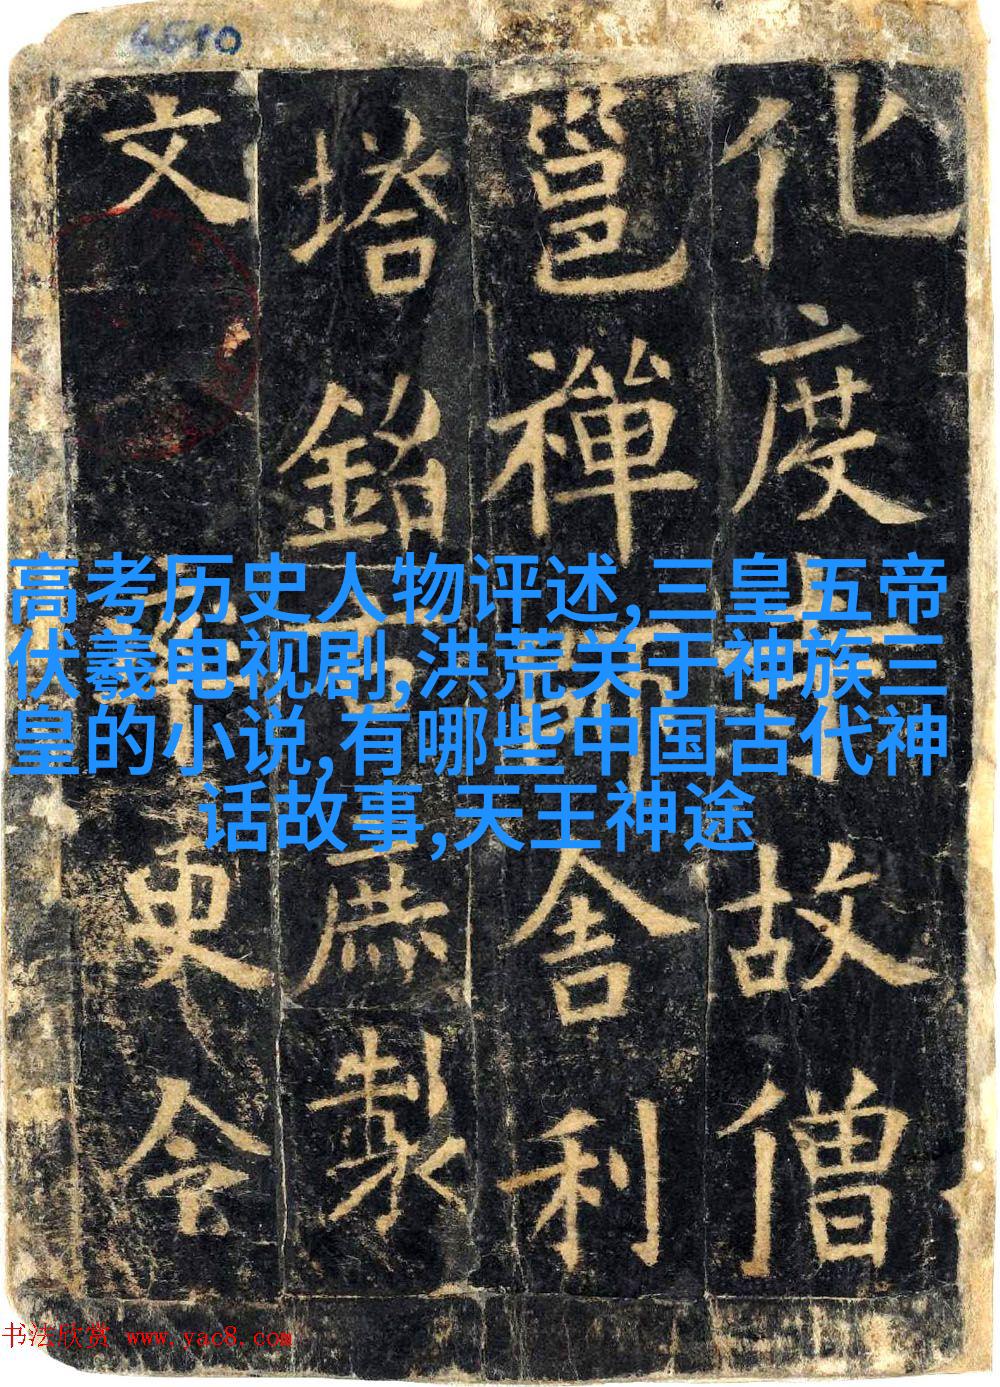 化度寺故僧
邕禪師舍利
塔銘右庶製
文更令
高考历史人物评述,三皇五帝
伏羲电视剧,洪荒关于神族三
皇的小说,有哪些中国古代神
话故事,天王神途
书法欣赏 www.yac8.com